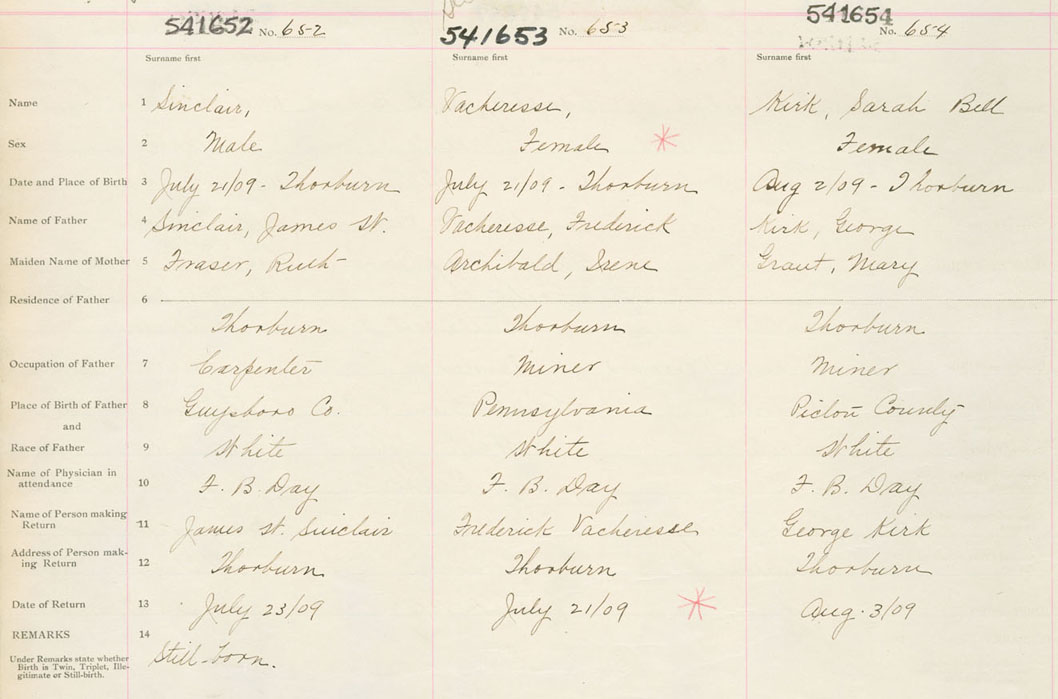 541652 No. 652 541653 No. 653 541654 No. 654
Surname first Surname first Surname first
Name 1 Sinclair, Vacheresse, Kirk, Sarah Bell
Sex 2 Male Female Female
Date and Place of Birth 3 July 21/09 - Thorburn July 21/09 - Thorburn Aug 2/09 - Thorburn
Name of Father 4 Sinclair, James W. Vacheresse, Frederick Kirk, George
Maiden Name of Mother 5 Fraser, Ruth Archibald, Irene Grant, Mary
Residence of Father 6
Thorburn Thorburn Thorburn
Occupation of Father 7 Carpenter Miner Miner
Place of Birth of Father 8 Guysboro Co. Pennsylvania Pictou County
and
Race of Father 9 White White White
Name of Physician in
attendance 10 F. B. Day F. B. Day F. B. Day
Name of Person making
Return 11 James W. Sinclair Frederick Vacheresse George Kirk
Address of Person mak-
ing Return 12 Thorburn Thorburn Thorburn
Date of Return 13 July 23/09 July 21/09 Aug. 3/09
REMARKS 14
Under Remarks state whether Still-born.
Birth is Twin, Triplet, Ille-
gitimate or Still-birth.